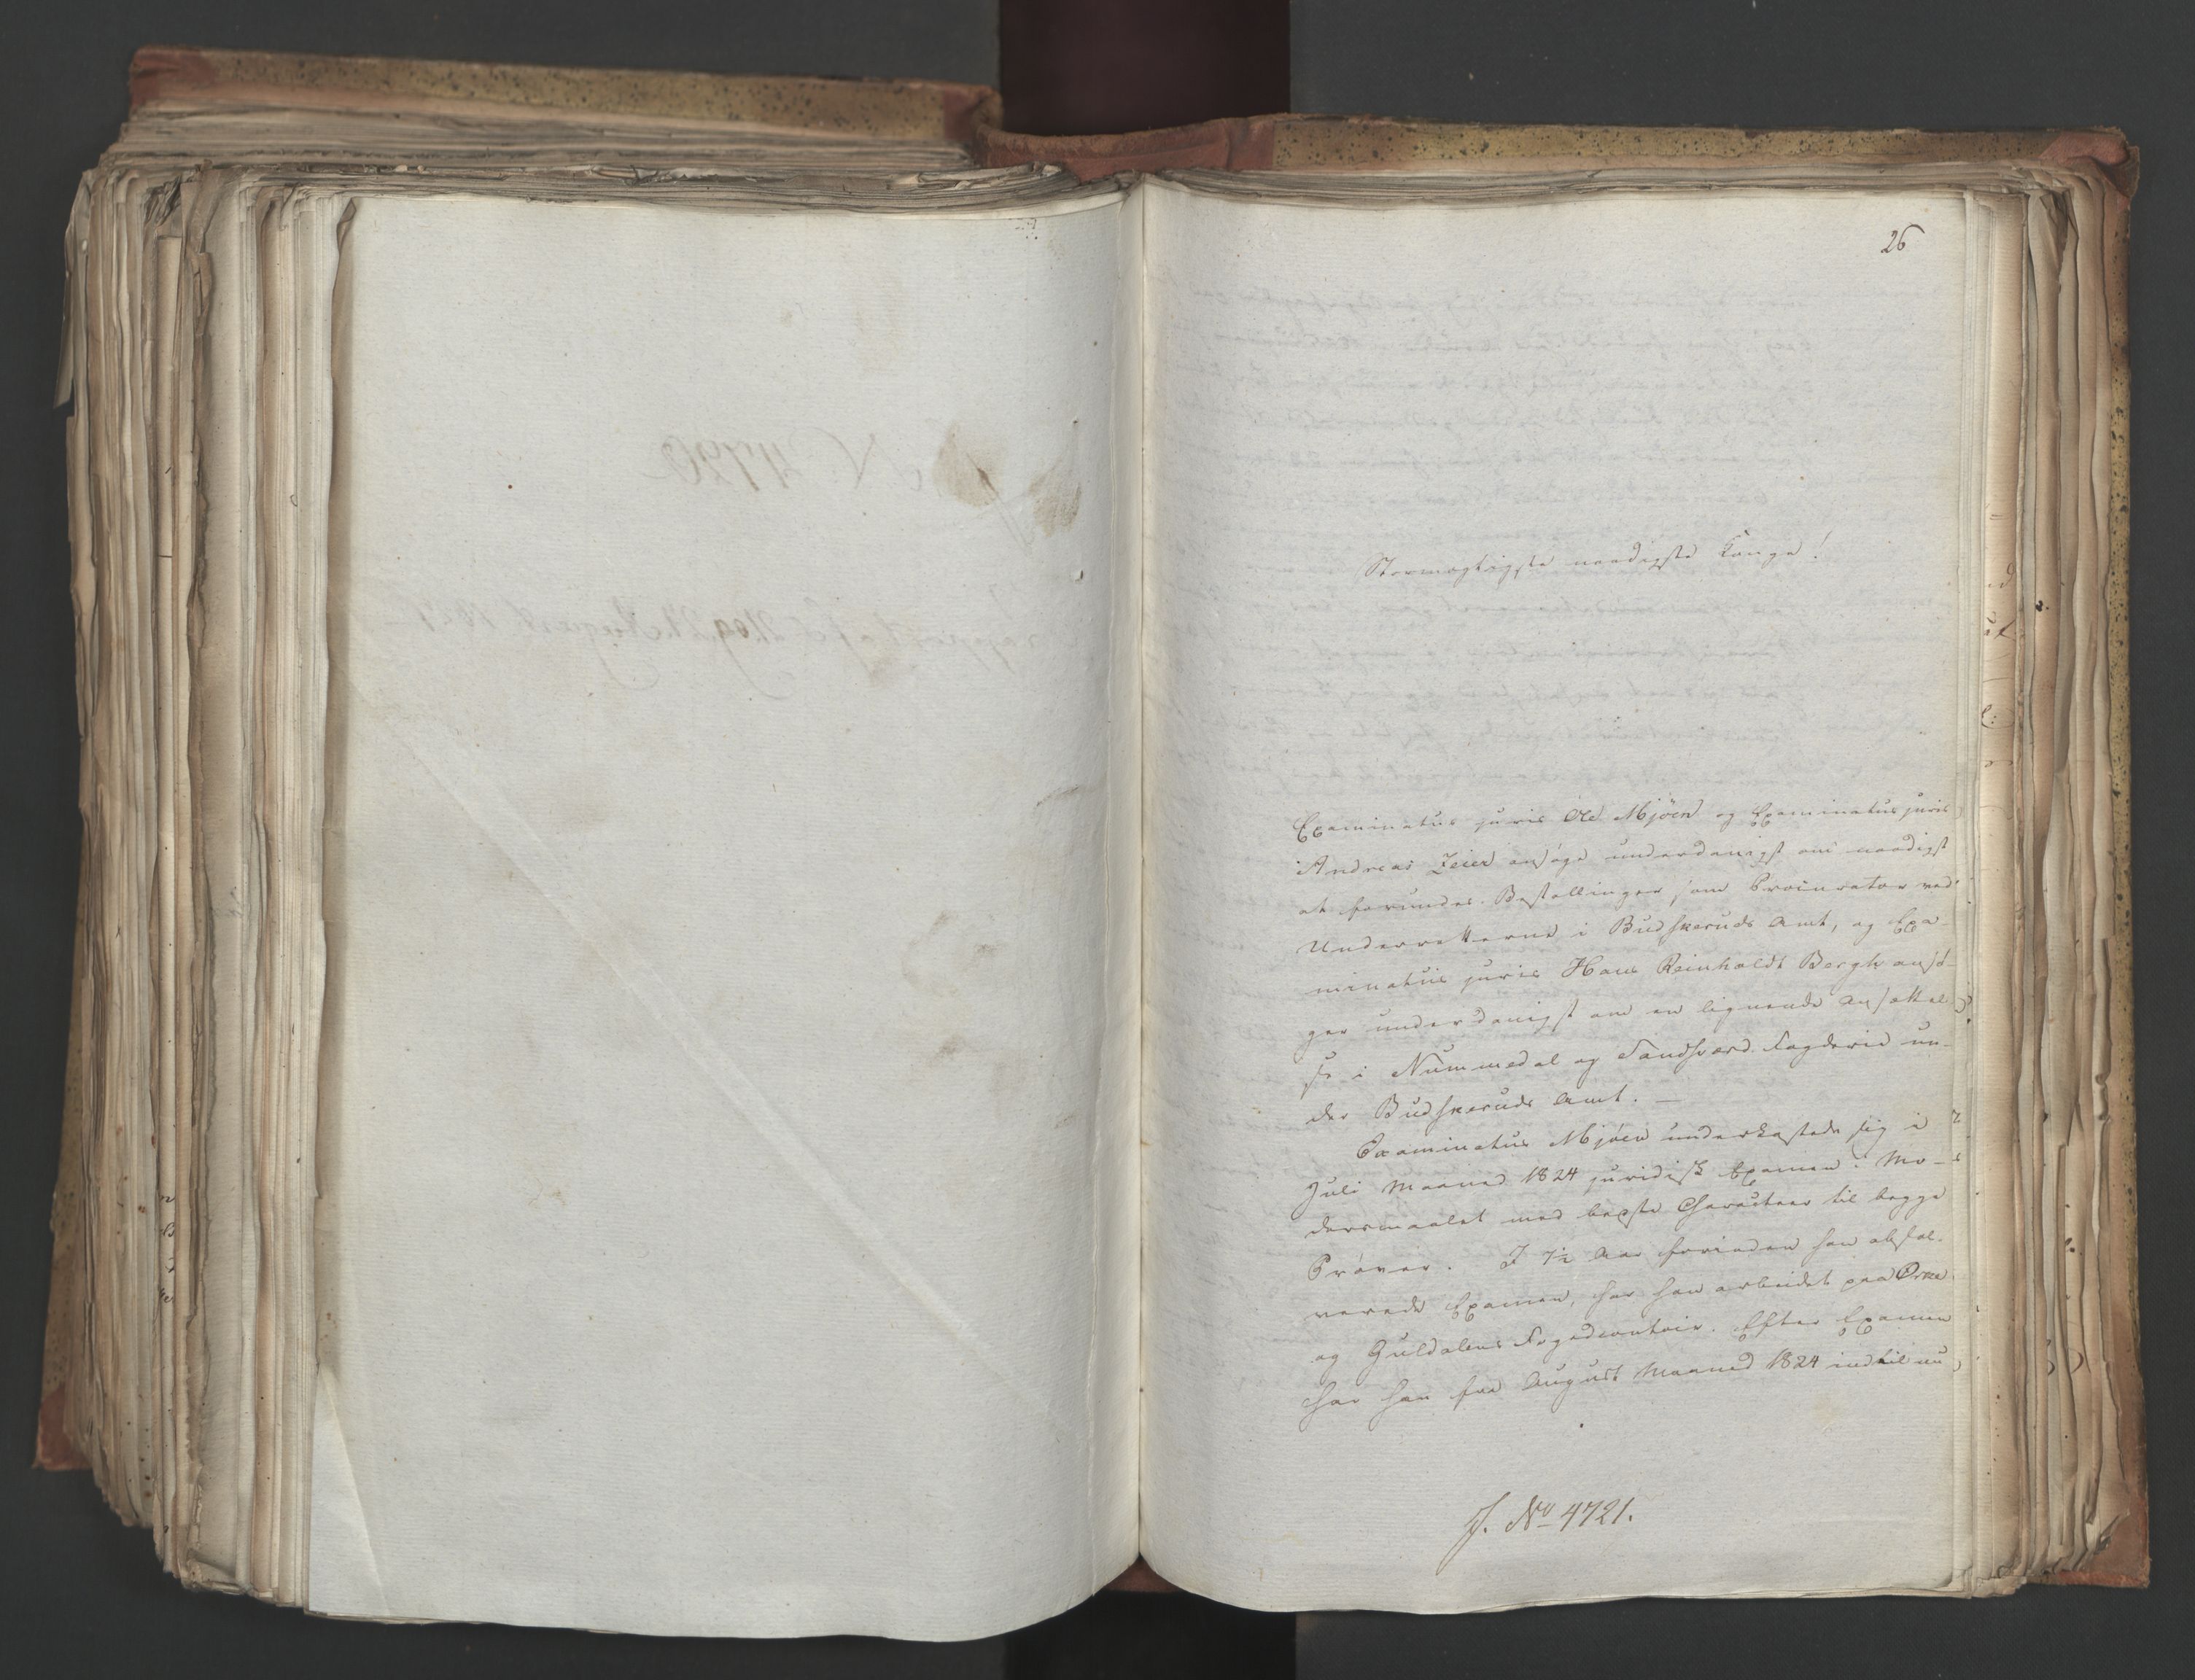 26
Stormægtigste naadigste Konge!
Examinatus juris Ole Mjöen og Examinatus juris
Andreas Zeier ansöge underdanigst om naadigst
at forundes Bestallinger som Procurator ved
Underretterne i Budskeruds Amt, og Exa-
minatus juris Hans Reinholdt Bergh ansö-
ger underdanigst om en lignende Ansættel-
se i Nummedal og Sandsværd Fogderie un-
der Budskeruds Amt. —
Examinatus Mjöen underkastede sig i
Juli Maaned 1824 juridisk Examen i Mo-
dersmaalet med bedste Characteer til begge
Pröver. I 7½ Aar forinden han absol-
verede Examen, har han arbeidet paa Orke
og Guldalens Fogedcontoir. Efter Examen
har han fra August Maaned 1824 indtil nu
J. No 4721.